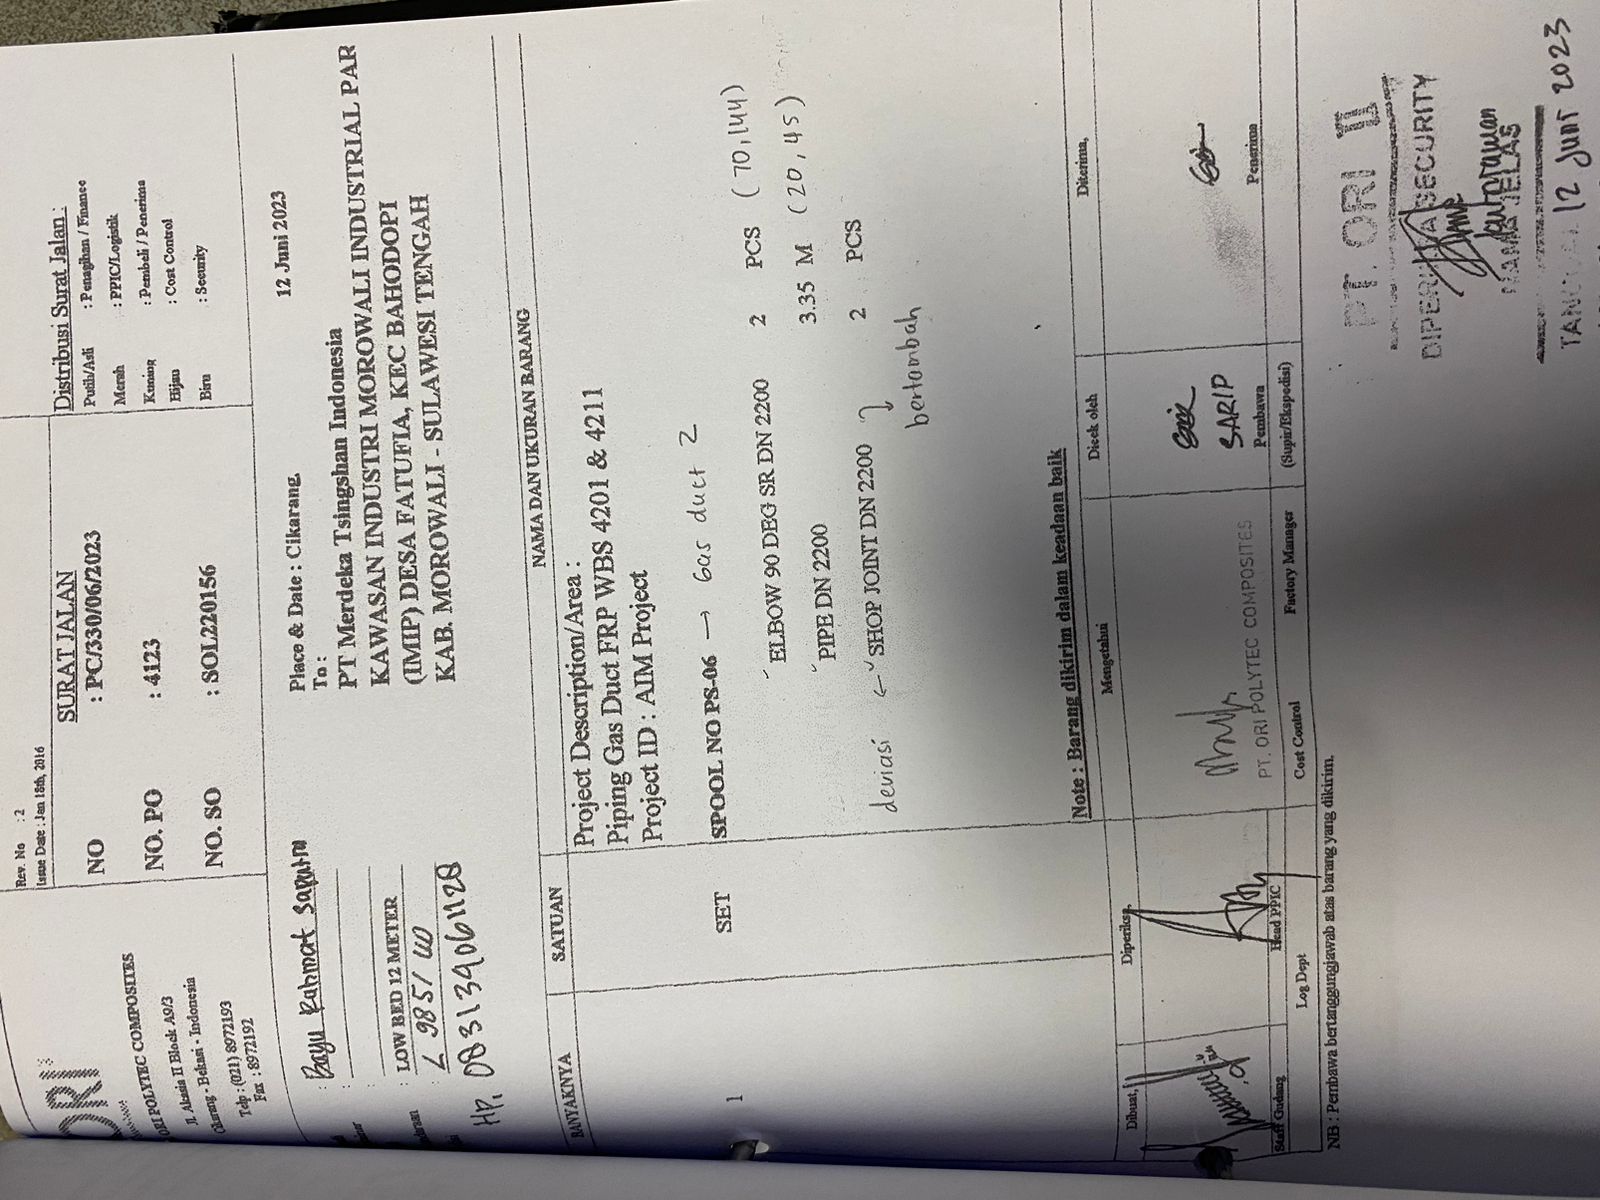 Rev. No : 2
Issue Date : Jan 18th, 2016
ORI
ORI POLYTEC COMPOSITES
Jl. Akasia II Block A9/3
Cikarang - Bekasi - Indonesia
Telp : (021) 8972193
Fax : 8972192
SURAT JALAN
NO : PC/330/06/2023
NO. PO : 4123
NO. SO : SOL220156
Distribusi Surat Jalan :
Putih/Asli : Penagihan / Finance
Merah : PPIC/Logistik
Kuning : Pembeli / Penerima
Hijau : Cost Control
Biru : Security
: Bayu Rahmat Saputra
:
: LOW BED 12 METER
:
HP. 083134061128
Place & Date : Cikarang, 12 Juni 2023
To :
PT Merdeka Tsingshan Indonesia
KAWASAN INDUSTRI MOROWALI INDUSTRIAL PAR
(IMIP) DESA FATUFIA, KEC BAHODOPI
KAB. MOROWALI - SULAWESI TENGAH
BANYAKNYA SATUAN NAMA DAN UKURAN BARANG
Project Description/Area :
Piping Gas Duct FRP WBS 4201 & 4211
Project ID : AIM Project
1 SET SPOOL NO PS-06 → Gas duct 2
ELBOW 90 DEG SR DN 2200 2 PCS (70,144)
PIPE DN 2200 3.35 M (20,45)
deviasi ← SHOP JOINT DN 2200 2 PCS
bertambah
Note : Barang dikirim dalam keadaan baik
Dibuat, Diperiksa, Mengetahui Dicek oleh Diterima,
PT. ORI POLYTEC COMPOSITES
SARIP
Staff Gudang Head PPIC Pembawa Penerima
Log Dept Cost Control Factory Manager (Supir/Ekspedisi)
NB : Pembawa bertanggungjawab atas barang yang dikirim.
PT. ORI II
DIPERIKSA SECURITY
NAMA JELAS
TANGGAL 12 JUNI 2023